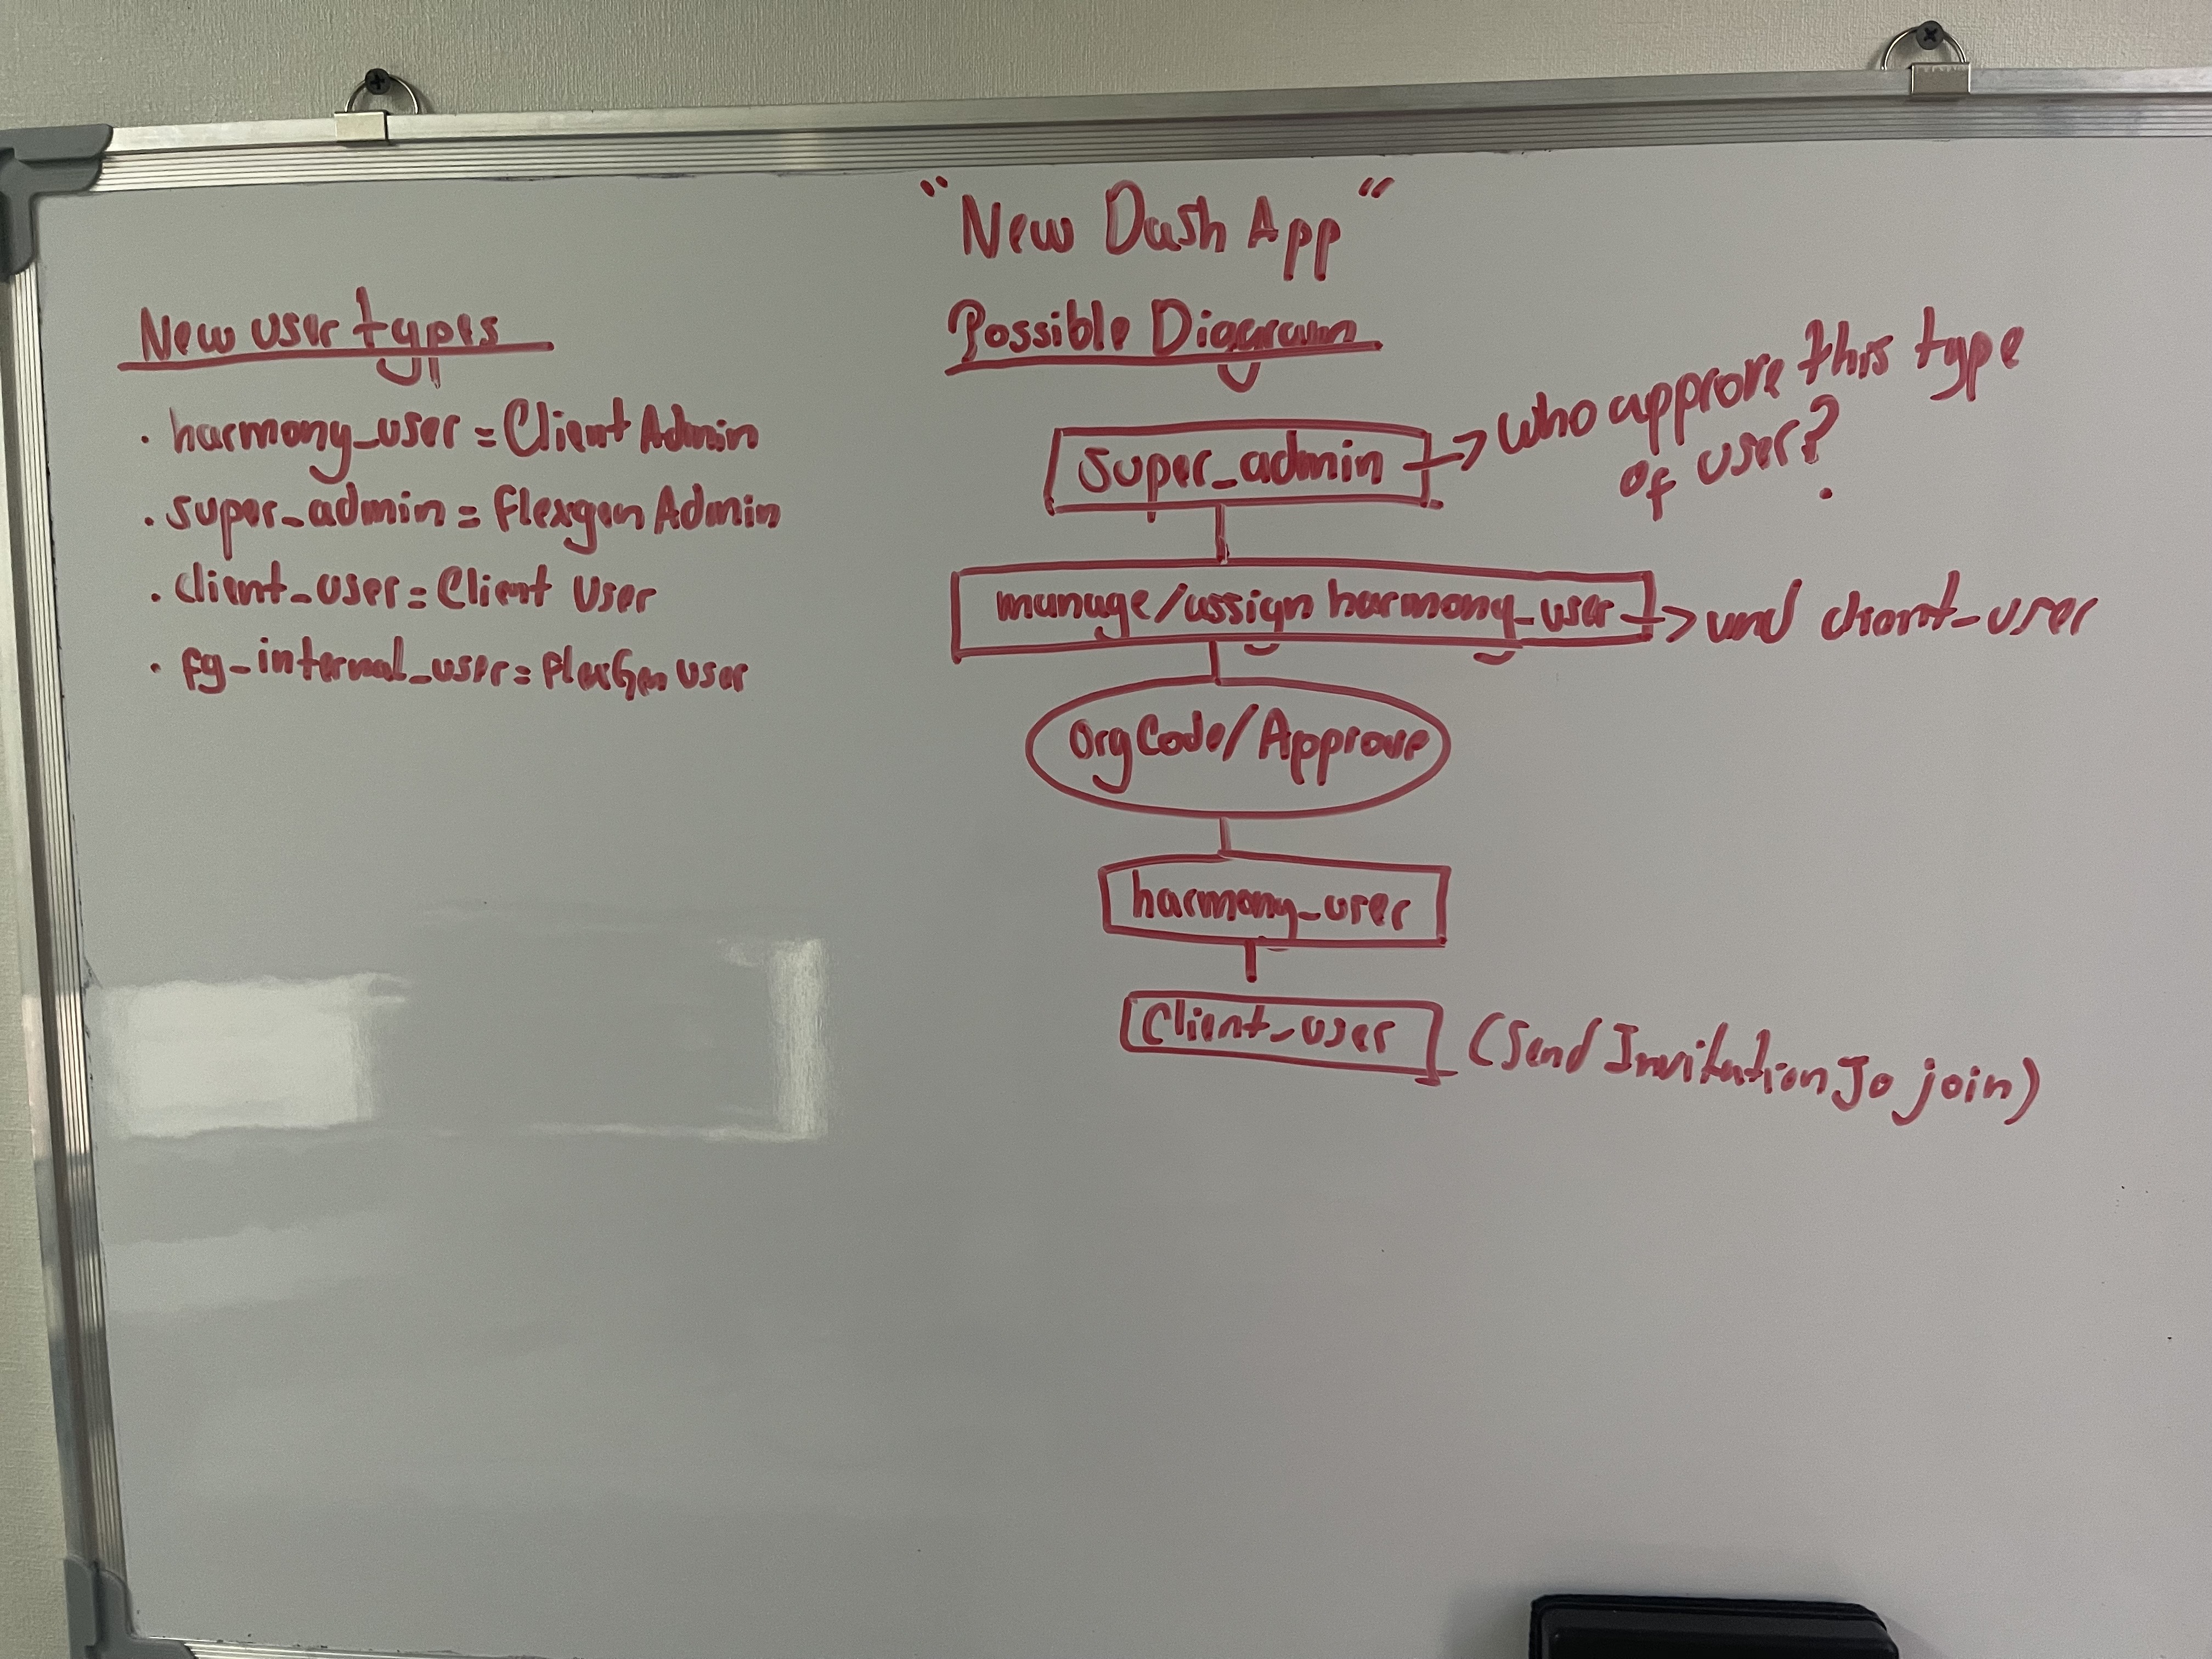 "New Dash App"
New user types
· harmony_user = Client Admin
· super_admin = Flexgen Admin
· client_user = Client User
· fg_internal_user = FlexGen User
Possible Diagram
super_admin → who approve this type
of user?
manage/assign harmony_user → and client_user
OrgCode/Approve
harmony_user
Client_user (Send Invitation To join)